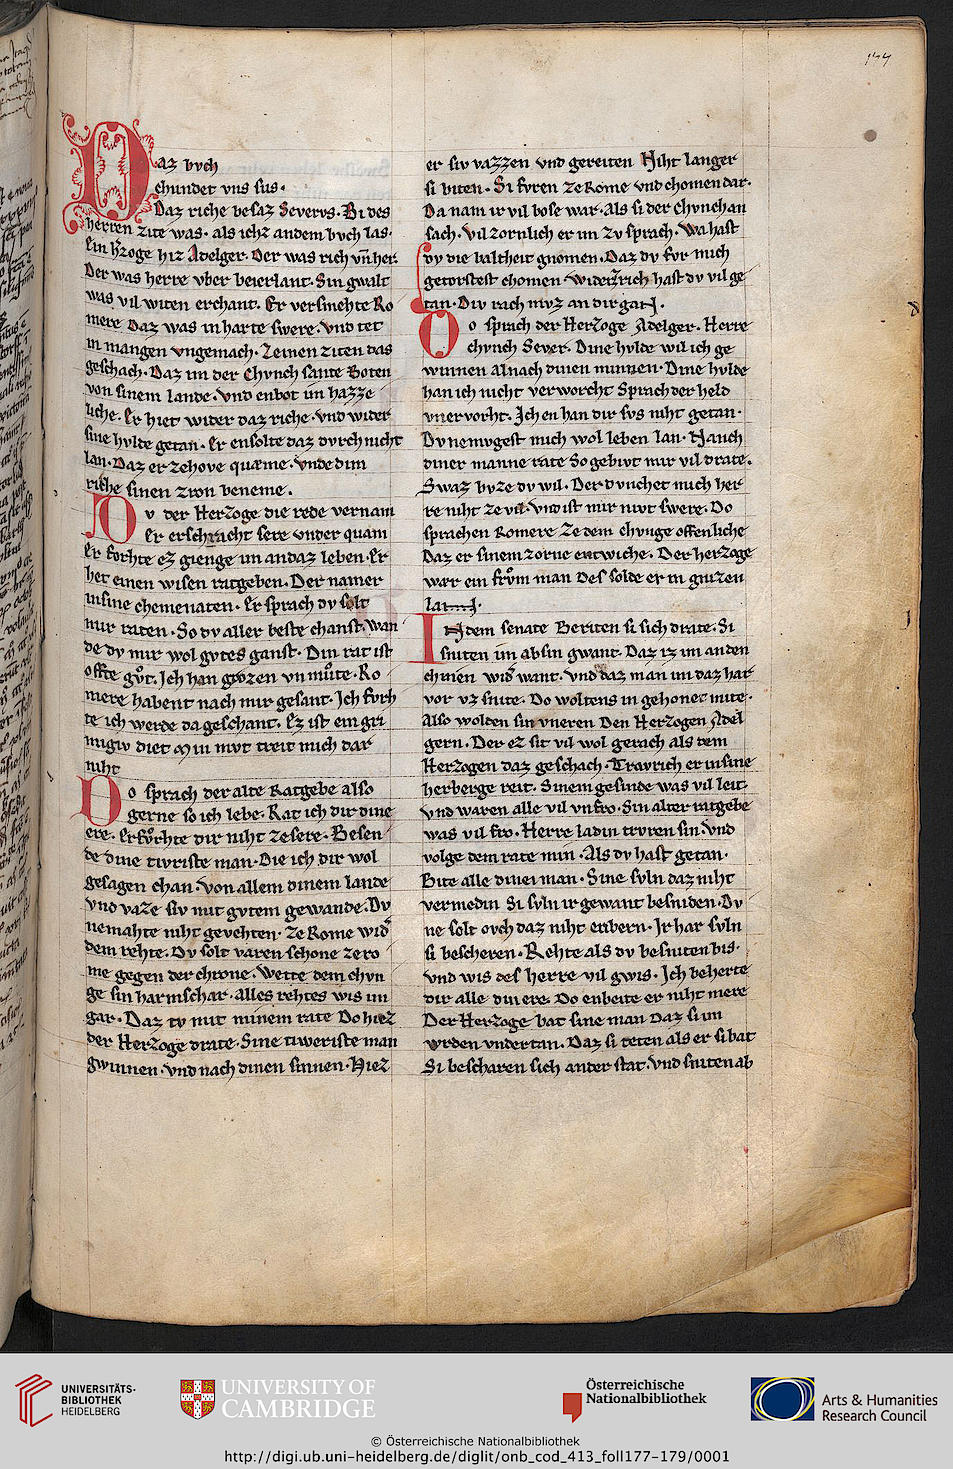 177
Daz bvch
chundet vns sus·
Daz riche besaz Severvs· Bi des
herren zite was· als ichz andem bvch las·
Ein hzoge hiz Adelger· Der was rich vn̄ her
Der was herre vber beierlant· Sin gwalt
was vil witen erchant. Er versmehte Ro
mere Daz was in harte swere· vnd tet
in mangen vngemach· Zeinen ziten das
geschach· Daz im der Chvnch sante Boten
von sinem lande· vnd enbot im hazze
liche. Er hiet wider daz riche· vnd wider
sine hvlde getan· er ensolte daz dvrch nicht
lan· Daz er zehove quæme· vnde dim
riche sinen zion beneme.
Do v der Herzoge die rede vernam
Er erschracht sere vnder quam
Er forhte ez gienge im an daz leben· Er
het einen wisen ratgeben· Der namer
in sine chemenaten· Er sprach dv solt
mir raten· So dv aller beste chanst· wan
de dv mir wol gvtes ganst· Din rat ist
offte gvͦt. Ich han grozen vn mvͦte· Ro
mere habent nach mir gesant· Ich fvrh
te ich werde da geschant· Ez ist ein gri
migiv diet Min mvt treit mich dar
niht
Do sprach der alte Ratgebe also
gerne so ich lebe· Rat ich dir dine
ere· Erfvͦrhte dir niht ze sere· Besen
de dine tivriste man· Die ich dir wol
gesagen chan· von allem dinem lande
vnd vaze siv mit gvtem gewande· Dv
nemahte niht gevehten· ze Rome wid
dem rehte· Dv solt varen schone ze ro
me gegen der chrone· Wette dem chvn
ge sin harnischar· Alles rehtes wis im
gar· Daz tv mit minem rate Do hiez
der Herzoge drate· Sine tiweriste man
gwinnen· vnd nach dinen sinnen· Hiez
er siv vazzen vnd gereiten Niht langer
si biten· Si fvren ze Rome vnd chomen dar·
Da nam ir vil bose war· Als si der chvnch an
sach· vil zornlich er im zv sprach· Wa hast
dv die baltheit gnomen· Daz dv fvr mich
getorstest chomen· widerzrich hast dv vil ge
tan· Div rach mvz an dir gan·
Do sprach der Herzoge Adelger· Herre
chvnch Sever· Dine hvlde wil ich ge
winnen al nach dinen minnen· Dine hvlde
han ich nicht verworcht Sprach der held
vnervorht· Ich en han dir svs niht getan·
Dv nemvgest mich wol leben lan· Nach
diner manne rate So gebivt mir vil drate·
Swaz bvze dv wil· Der dvnchet mich her
re niht ze vil· vnd ist mir niwt swere· Do
sprachen Romere Ze dem chvnge offenliche
Daz er sinem zorne entwiche· Der herzoge
war ein frvͦm man Des solde er in gnizen
lan·
In dem senate Berieten si sich drate· Si
sniten im ab sin gwant· Daz iz im an den
chnien wid want· vnd daz man im daz har
vor vz snite· Do woltens in gehonet mite·
Also wolden sin vneren Den Herzogen Adel
gern· Der ez sit vil wol gerach als dem
Herzogen daz geschach· Travrich er in sine
herberge reit· Sinem gesinde was vil leit·
vnd waren alle vil vnfro· Sin alter ratgebe
was vil fro· Herre la din trvren sin· vnd
volge dem rate min· Als dv hast getan·
Bite alle dinei man· Sine svln daz niht
vermedin Si svln ir gewant besniden· Dv
ne solt ovch daz niht enbern· Ir har svln
si bescheren· Rehte als dv besniten bis·
vnd wis des herre vil gwis· Ich beherte
dir alle din ere· Do enbeite er niht mere
Der Herzoge bat sine man Daz si im
wrden vndertan· Daz si teten als er si bat
Si bescharen sich an der stat· vnd sniten ab
UNIVERSITÄTS-
BIBLIOTHEK
HEIDELBERG
UNIVERSITY OF
CAMBRIDGE
Österreichische
Nationalbibliothek
Arts & Humanities
Research Council
© Österreichische Nationalbibliothek
http://digi.ub.uni-heidelberg.de/diglit/onb_cod_413_foll177-179/0001